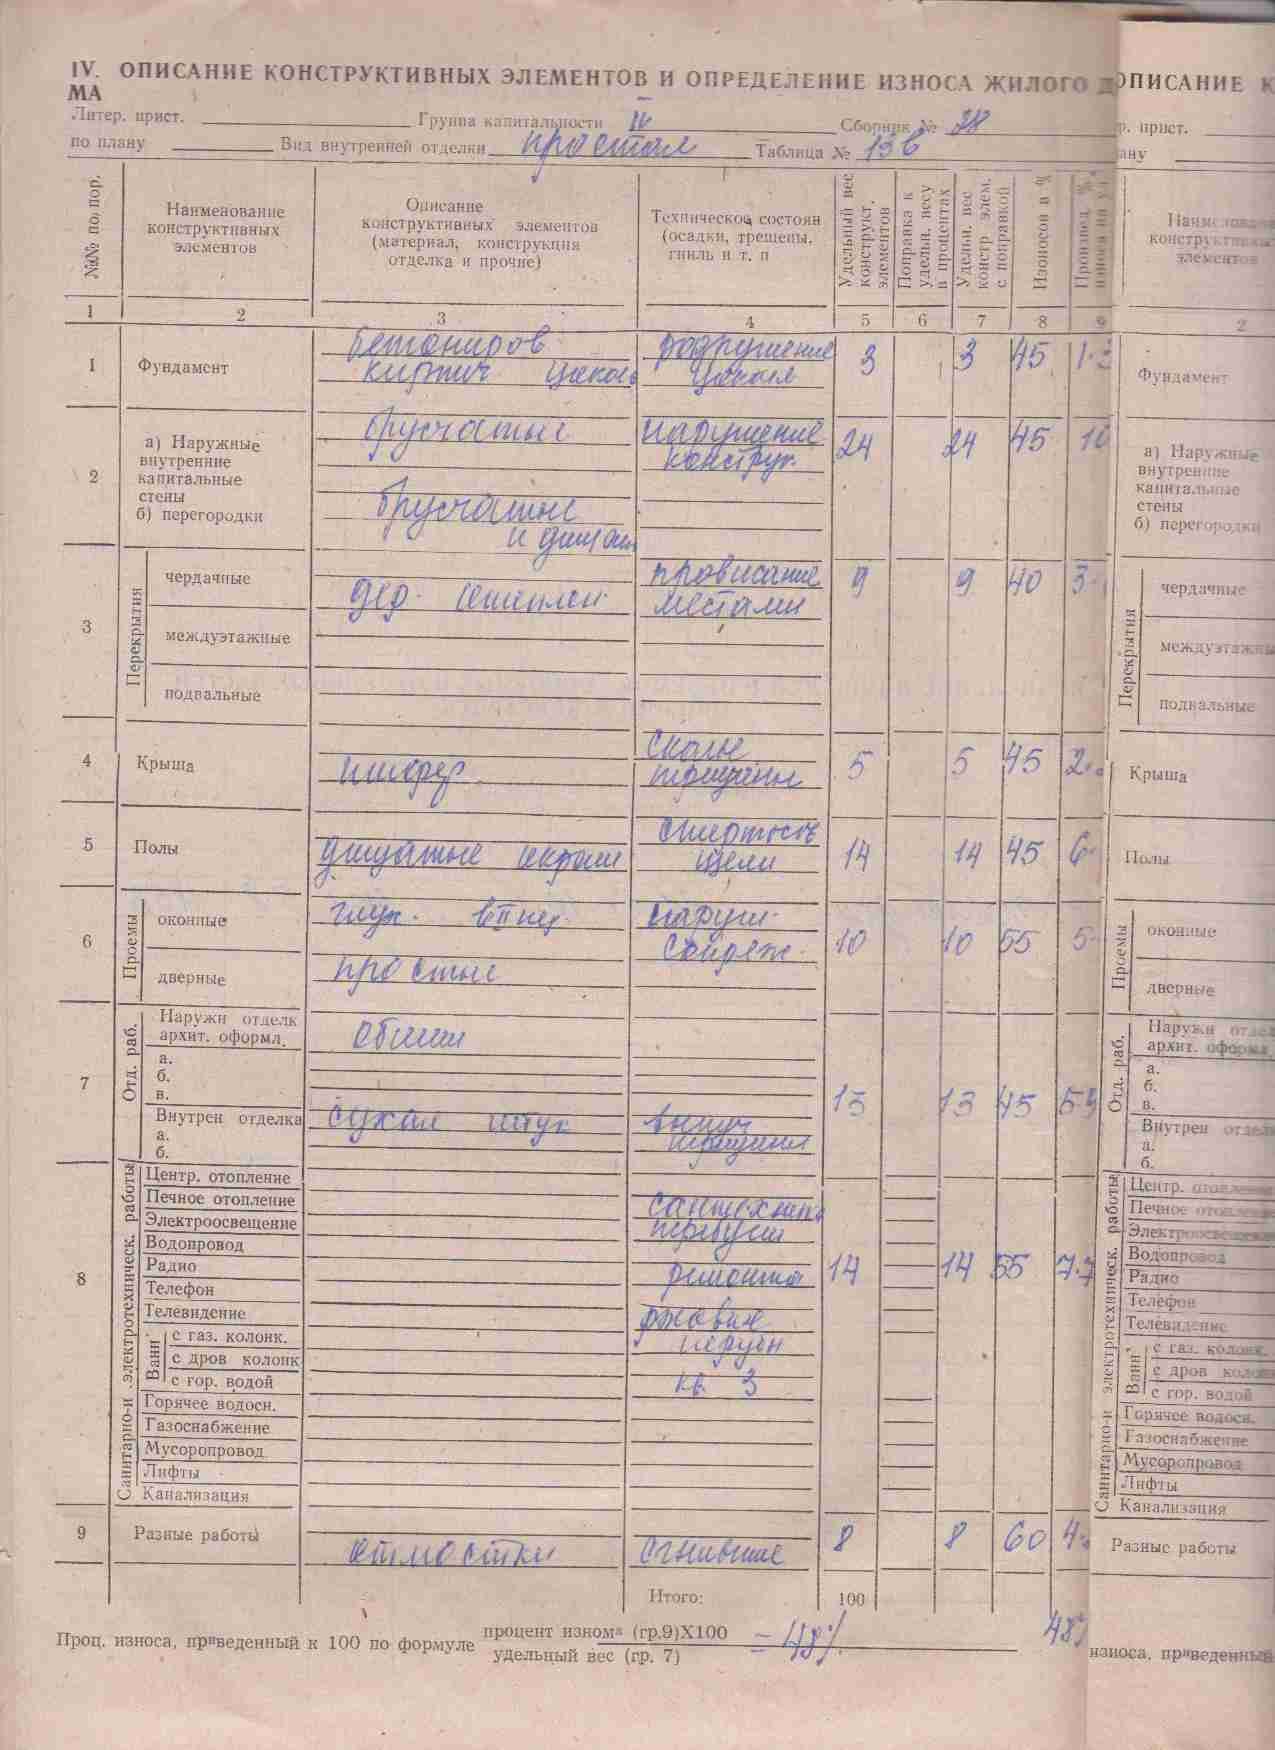 IV. ОПИСАНИЕ КОНСТРУКТИВНЫХ ЭЛЕМЕНТОВ И ОПРЕДЕЛЕНИЕ ИЗНОСА ЖИЛОГО Д
МА
Литер. прист. Группа капитальности IV Сборник № 28
по плану Вид внутренней отделки простая Таблица № 13в
№№ по пор.
Наименование
конструктивных
элементов
Описание
конструктивных элементов
(материал, конструкция
отделка и прочие)
Техническое состоян
(осадки, трещены,
гниль и т. п
Удельный вес
конструкт,
элементов
Поправка к
удельн. весу
в процентах
Удельн. вес
констр элем.
с поправкой
Изоносов в %
Произвед %
1 2 3 4 5 6 7 8 9
1 Фундамент
бетониров
кирпич цоколь
разрушение
цоколя
3 3 45 1.3
2
а) Наружные
внутренние
капитальные
стены
б) перегородки
брусчатые
брусчатые
и дощат
нарушение
конструк.
24 24 45 10
3 Перекрытия
чердачные
междуэтажные
подвальные
дер. утеплен.
провисание
местами
9 9 40 3.
4 Крыша
шифер
сколы
трещины
5 5 45 2.
5 Полы
дощатые окраш
стертость
щели
14 14 45 6.
6 Проемы
оконные
дверные
простые
наруш.
сопряж.
10 10 55 5.
7 Отд. раб.
Наружн отделк
архит. оформл.
а.
б.
в.
Внутрен отделка
а.
б.
обшит
сухая штук
выпуч
трещины
13 13 45 5.9
8 Санитарно-и электротехническ. работы
Центр. отопление
Печное отопление
Электроосвещение
Водопровод
Радио
Телефон
Телевидение
Ванн
с газ. колонк.
с дров колонк
с гор. водой
Горячее водосн.
Газоснабжение
Мусоропровод
Лифты
Канализация
сантехника
требует
ремонта
ржавые
кв. 3
14 14 55 7.7
9 Разные работы
отмостки
сгнившие
8 8 60 4.
Итого: 100
Проц. износа, приведенный к 100 по формуле
процент износа (гр.9)Х100
удельный вес (гр. 7)
= 48%
48%
ОПИСАНИЕ К
р. прист.
ану
Наименование
конструктивных
элементов
2
Фундамент
а) Наружные
внутренние
капитальные
стены
б) перегородки
Перекрытия
чердачные
междуэтажны
подвальные
Крыша
Полы
Проемы
оконные
дверные
Отд. раб.
Наружн отдел
архит. оформл.
а.
б.
в.
Внутрен отделк
а.
б.
Санитарно-и электротехническ. работы
Центр. отоплени
Печное отоплен
Электроосвещени
Водопровод
Радио
Телефон
Телевидение
Ванн
с газ. колонк.
с дров колон
с гор. водой
Горячее водосн.
Газоснабжение
Мусоропровод
Лифты
Канализация
Разные работы
износа, приведенный